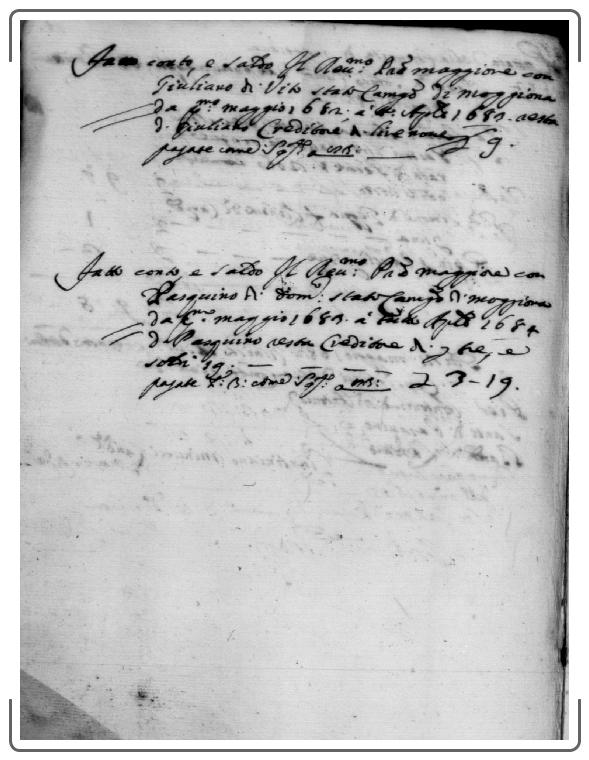 Fatto conto, e saldo Il Reu:mo Pad maggiore con
Giuliano di Vito stato Camgo di moggiona
da pmo maggio 1682: a Aple 1683. resta
d: Giuliano Creditore di lire noue £ 9.
pagate come:
Fatto conto, e saldo Il Reu:mo Pad maggiore con
Pasquino di Dom: stato Camgo di moggiona
da pmo maggio 1683. a tutto Aple 1684
d: Pasquino resta Creditore di: 7 tre, e
soldi 19:
pagate B: come £ 3-19.